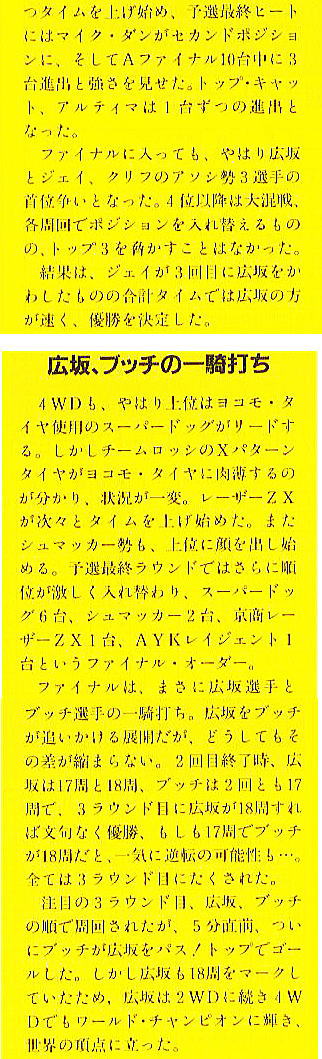 つタイムを上げ始め、予選最終ヒート
にはマイク・ダンがセカンドポジショ
ンに、そしてAファイナル10台中に3
台進出と強さを見せた。トップ・キャッ
ト、アルティマは1台ずつの進出と
なった。
　ファイナルに入っても、やはり広坂
とジェイ、クリフのアソシ勢3選手の
首位争いとなった。4位以降は大混戦、
各周回でポジションを入れ替えるもの
の、トップ3を脅かすことはなかった。
　結果は、ジェイが3回目に広坂をか
わしたものの合計タイムでは広坂の方
が速く、優勝を決定した。
広坂、ブッチの一騎打ち
　4WDも、やはり上位はヨコモ・タ
イヤ使用のスーパードッグがリードす
る。しかしチームロッシのXパターン
タイヤがヨコモ・タイヤに肉薄するの
が分かり、状況が一変。レーザーZX
が次々とタイムを上げ始めた。また
シュマッカー勢も、上位に顔を出し始
める。予選最終ラウンドではさらに順
位が激しく入れ替わり、スーパードッ
グ6台、シュマッカー2台、京商レー
ザーZX1台、AYKレイジェント1
台というファイナル・オーダー。
　ファイナルは、まさに広坂選手と
ブッチ選手の一騎打ち。広坂をブッチ
が追いかける展開だが、どうしてもそ
の差が縮まらない。2回目終了時、広
坂は17周と18周、ブッチは2回とも17
周で、3ラウンド目に広坂が18周すれ
ば文句なく優勝、もしも17周でブッチ
が18周だと、一気に逆転の可能性も…。
全ては3ラウンド目にたくされた。
　注目の3ラウンド目、広坂、ブッチ
の順で周回されたが、5分直前、つい
にブッチが広坂をパス！トップでゴー
ルした。しかし広坂も18周をマークし
ていたため，広坂は2WDに続き4W
Dでもワールド・チャンピオンに輝き、
世界の頂点に立った。